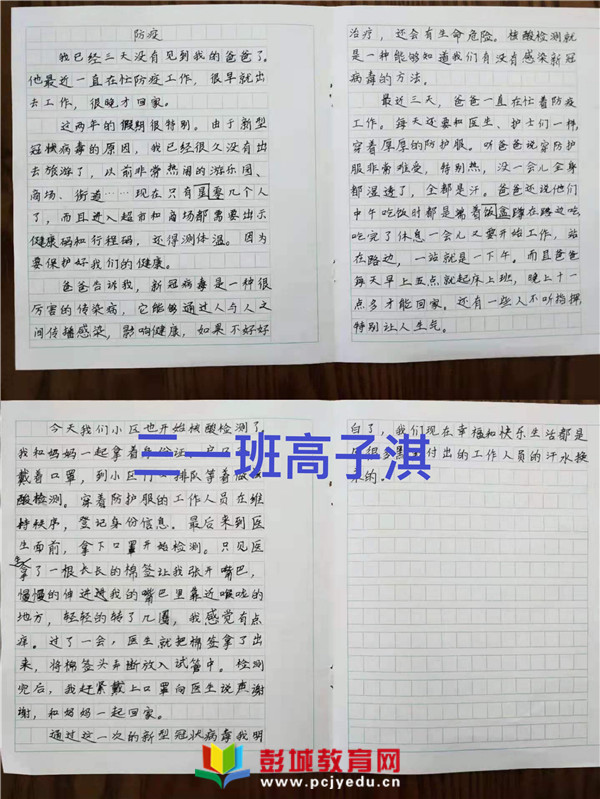 防疫
我已经三天没有见到我的爸爸了。
他最近一直在忙防疫工作，很早就出
去工作，很晚才回家。
这两年的假期很特别。由于新型
冠状病毒的原因，我已经很久没有出
去旅游了，从前非常热闹的游乐园、
商场、街道……现在只有零零几个人
了，而且进入超市和商场都需要出示
健康码和行程码，还得测体温。因为
要保护好我们的健康。
爸爸告诉我，新冠病毒是一种很
厉害的传染病，它能够通过人与人之
间传播感染，影响健康，如果不好好
治疗，还会有生命危险。核酸检测就
是一种能够知道我们有没有感染新冠
病毒的方法。
最近三天，爸爸一直在忙着防疫
工作。每天还要和医生、护士们一样，
穿着厚厚的防护服。听爸爸说穿防护
服非常难受，特别热，没一会儿全身
都湿透了，全都是汗。爸爸还说他们
中午吃饭时都是端着饭盒蹲在路边吃，
吃完了休息一会儿又要开始工作，站
在路边，一站就是一下午。而且爸爸
每天早上五点就起床上班，晚上十一
点多才能回家。还有一些人不听指挥，
特别让人生气。
今天我们小区也开始核酸检测了。
我和妈妈一起拿着身份证
戴着口罩，到小区门口排队等着做核
酸检测。穿着防护服的工作人员在维
持秩序，登记身份信息。最后来到医
生面前，拿下口罩开始检测。只见医
生拿了一根长长的棉签让我张开嘴巴，
慢慢的伸进我的嘴巴里靠近喉咙的
地方，轻轻的转了几圈，我感觉有点
痒。过了一会，医生就把棉签拿了出
来，将棉签头弄断放入试管中。检测
完后，我赶紧戴上口罩向医生说声谢
谢，和妈妈一起回家。
通过这一次的新型冠状病毒我明
白了，我们现在幸福和快乐生活都是
很多默默付出的工作人员的汗水换
来的。
三一班高子淇
彭城教育网
www.pcjyedu.cn